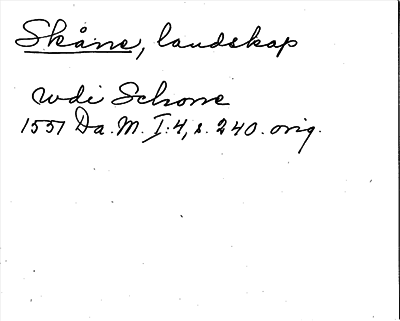 Skåne, landskap
udi Schone
1551 Da. M. I:4, s. 240. orig.